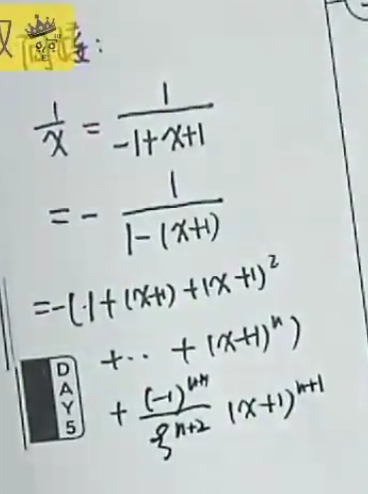 1/x = 1/(-1+x+1)
= - 1/(1-(x+1))
=-(1+(x+1)+(x+1)²
+·· +(x+1)ⁿ)
+ (-1)ⁿ⁺¹/ξⁿ⁺² (x+1)ⁿ⁺¹
DAY5